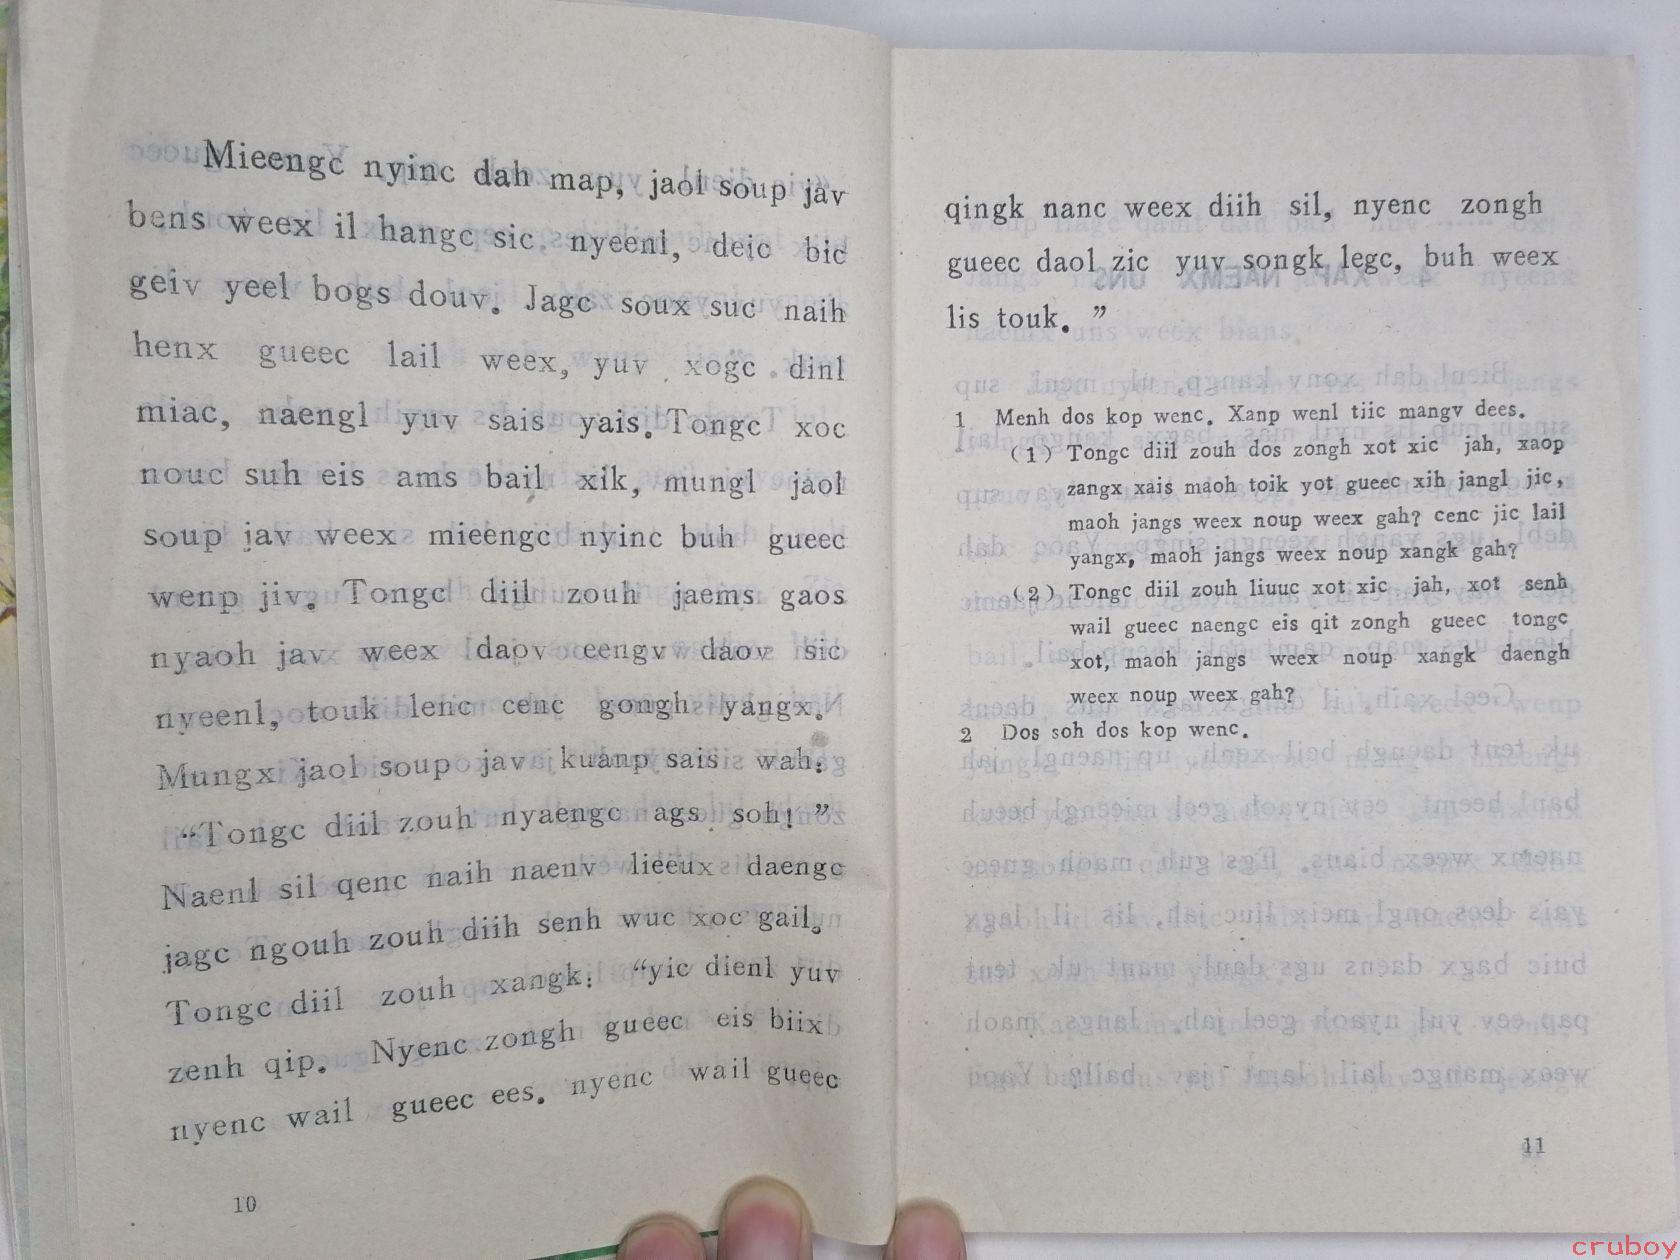 Mieengc nyinc dah map, jaol soup jav
bens weex il hangc sic nyeenl, deic bic
geiv yeel bogs douv. Jagc soux suc naih
henx gueec lail weex, yuv xogc dinl
miac, naengl yuv sais yais. Tongc xoc
nouc suh eis ams bail xik, mungl jaol
soup jav weex mieengc nyinc buh gueec
wenp jiv. Tongc diil zouh jaems gaos
nyaoh jav weex daov eengv daov sic
nyeenl, touk lenc cenc gongh yangx.
Mungx jaol soup jav kuanp sais wah:
“Tongc diil zouh nyaengc ags soh! ”
Naenl sil qenc naih naenv lieeux daengc
jagc ngouh zouh diih senh wuc xoc gail.
Tongc diil zouh xangk: “yic dienl yuv
zenh qip. Nyenc zongh gueec eis biix
nyenc wail gueec ees. nyenc wail gueec
10
qingk nanc weex diih sil, nyenc zongh
gueec daol zic yuv songk legc, buh weex
lis touk. ”
1 Menh dos kop wenc. Xanp wenl tiic mangv dees.
(1) Tongc diil zouh dos zongh xot xic jah, xaop
zangx xais maoh toik yot gueec xih jangl jic,
maoh jangs weex noup weex gah? cenc jic lail
yangx, maoh jangs weex noup xangk gah?
(2) Tongc diil zouh liuuc xot xic jah, xot senh
wail gueec naengc eis qit zongh gueec tongc
xot, maoh jangs weex noup xangk daengh
weex noup weex gah?
2 Dos soh dos kop wenc.
11
cruboy